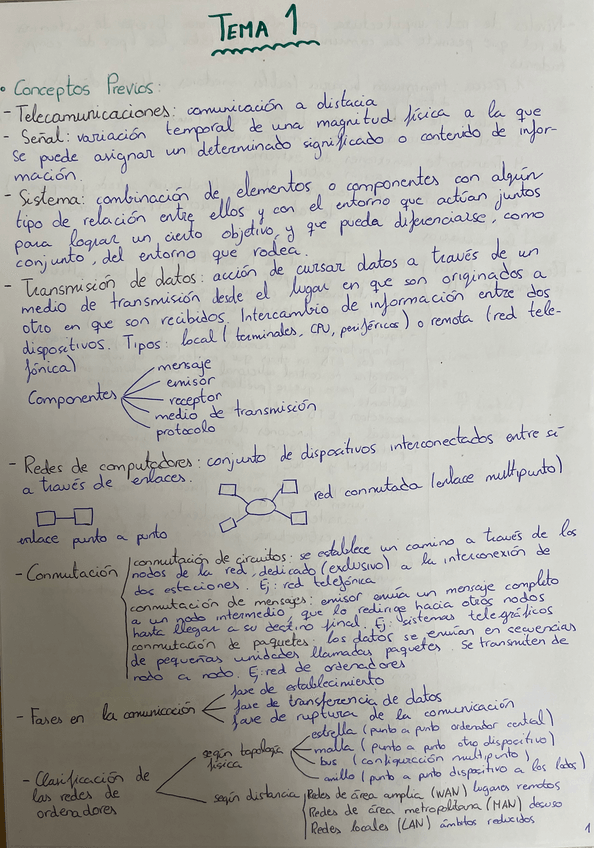 TEMA 1
• Conceptos Previos:
- Telecomunicaciones: comunicación a distacia
- Señal: variación temporal de una magnitud física a la que
se puede asignar un determinado significado o contenido de infor-
mación.
- Sistema: combinación de elementos o componentes con algún
tipo de relación entre ellos y con el entorno que actúan juntos
para lograr un cierto objetivo, y que pueda diferenciarse, como
conjunto, del entorno que rodea.
- Transmisión de datos: acción de cursar datos a través de un
medio de transmisión desde el lugar en que son originados a
otro en que son recibidos. Intercambio de información entre dos
dispositivos. Tipos: local (terminales, CPU, periféricos) o remota (red tele-
fónica)
Componentes
mensaje
emisor
receptor
medio de transmisión
protocolo
- Redes de computadores: conjunto de dispositivos interconectados entre sí
a través de enlaces.
enlace punto a punto
red conmutada (enlace multipunto)
- Conmutación
conmutación de circuitos: se establece un camino a través de los
nodos de la red, dedicado (exclusivo) a la interconexión de
dos estaciones. Ej: red telefónica
conmutación de mensajes: emisor envía un mensaje completo
a un nodo intermedio que lo redirige hacia otros nodos
hasta llegar a su destino final. Ej: sistemas telegráficos
conmutación de paquetes: los datos se envían en secuencias
de pequeñas unidades llamadas paquetes. Se transmiten de
nodo a nodo. Ej: red de ordenadores
- Fases en la comunicación
fase de establecimiento
fase de transferencia de datos
fase de ruptura de la comunicación
- Clasificación de
las redes de
ordenadores
según topología
física
estrella (punto a punto ordenador central)
malla (punto a punto otro dispositivo)
bus (configuración multipunto)
anillo (punto a punto dispositivo a los lados)
según distancia
Redes de área amplia (WAN) lugares remotos
Redes de área metropolitana (MAN)
Redes locales (LAN) ámbitos reducidos
1